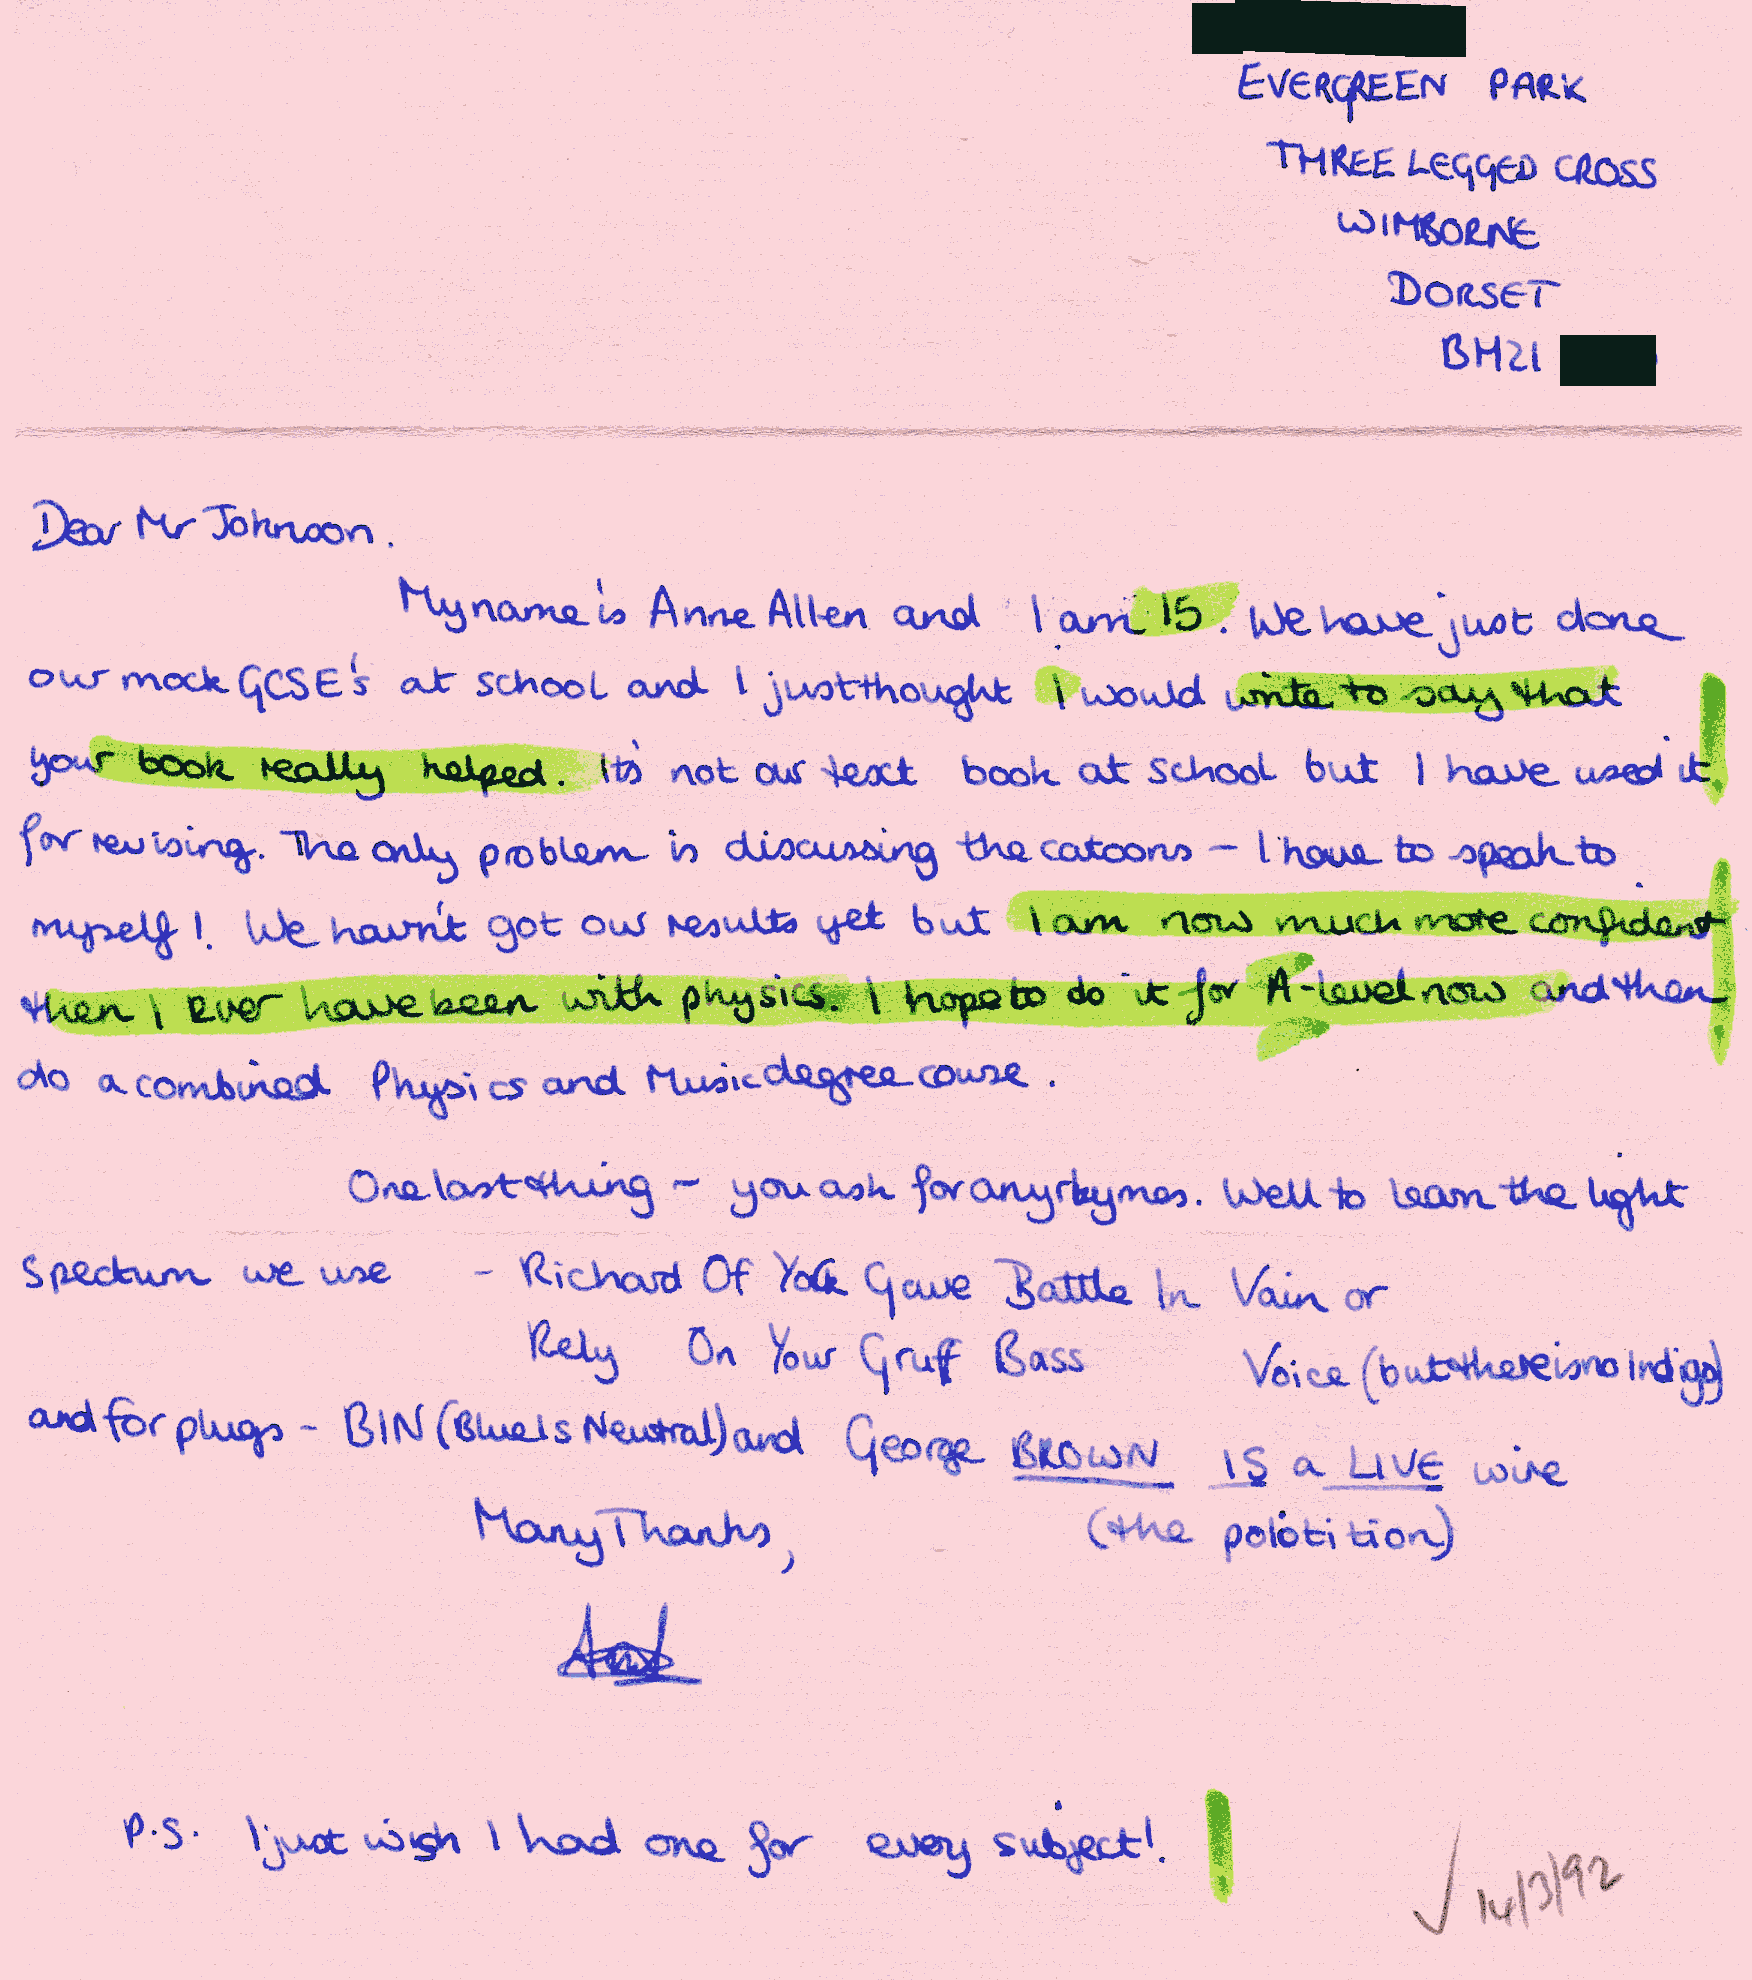 EVERGREEN PARK
THREE LEGGED CROSS
WIMBORNE
DORSET
BH21
Dear Mr Johnson.
My name is Anne Allen and I am 15. We have just done
our mock GCSE's at school and I just thought I would write to say that
your book really helped. It's not our text book at school but I have used it
for revising. The only problem is discussing the catoons - I have to speak to
myself! We havn't got our results yet but I am now much more confident
then I ever have been with physics. I hope to do it for A-level now and then
do a combined Physics and Music degree couse.
One last thing - you ask for any rhymes. Well to learn the light
spectum we use - Richard Of York Gave Battle In Vain or
Rely On Your Gruff Bass Voice (but there is no Indigo)
and for plugs - BIN (Blue Is Neutral) and George BROWN IS a LIVE wire
Many Thanks, (the polotition)
P.S. I just wish I had one for every subject!
14/3/92